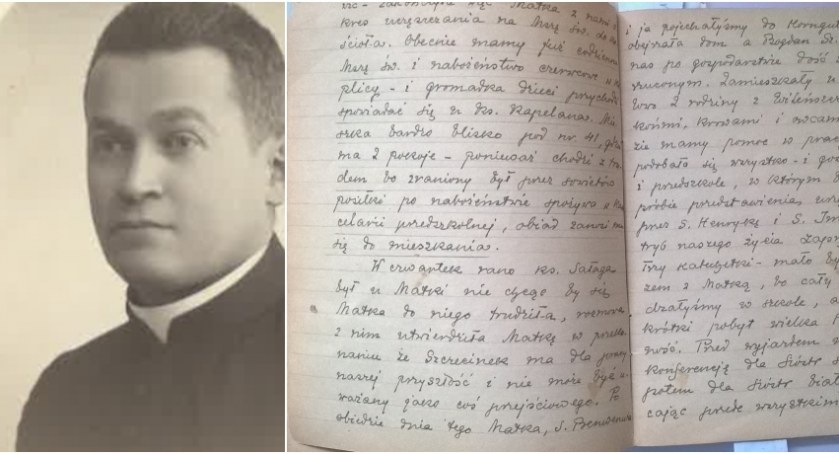 kres uczęszczania na Mszę św. do ko
ścioła. Obecnie mamy już codziennie
Mszę św. i nabożeństwo czerwcowe w ka
plicy - i gromadka dzieci przychodzi
spowiadać się u ks. Kapelana. Mie
szka bardzo blisko pod nr 41, gdzie
ma 2 pokoje - ponieważ chodzi z tru
dem bo zraniony był przez sowietów
posiłki po nabożeństwie spożywa w kan
celarii przedszkolnej, obiad zanosi mu
się do mieszkania.
W czwartek rano ks. Sałaga
był u Matki nie chcąc by się
Matka do niego trudziła, rozmowa
z nim utwierdziła Matkę w przeko
naniu że Szczecinek ma dla pracy
naszej przyszłość i nie może być u
ważany jako coś przejściowego. Po
obiedzie dnia tego Matka, S.
i ja pojechałyśmy do
obejrzała dom a Bogdan St.
nas po gospodarstwie dość
rzuconym. Zamieszkały
2 rodziny z
końmi, krowami i
zie mamy pomoc w
podobało się wszystko - i
i przedszkole, w którym
próbie przedstawienia
przez S. Henrykę i S.
tryb naszego życia
Trzy katechetki - mało
zem z Matką, bo cały
działyśmy w szkole, a
krótki pobyt wielką
ność. Przed wyjazdem
konferencję dla Sióstr
potem dla Sióstr
cając przede wszystkim